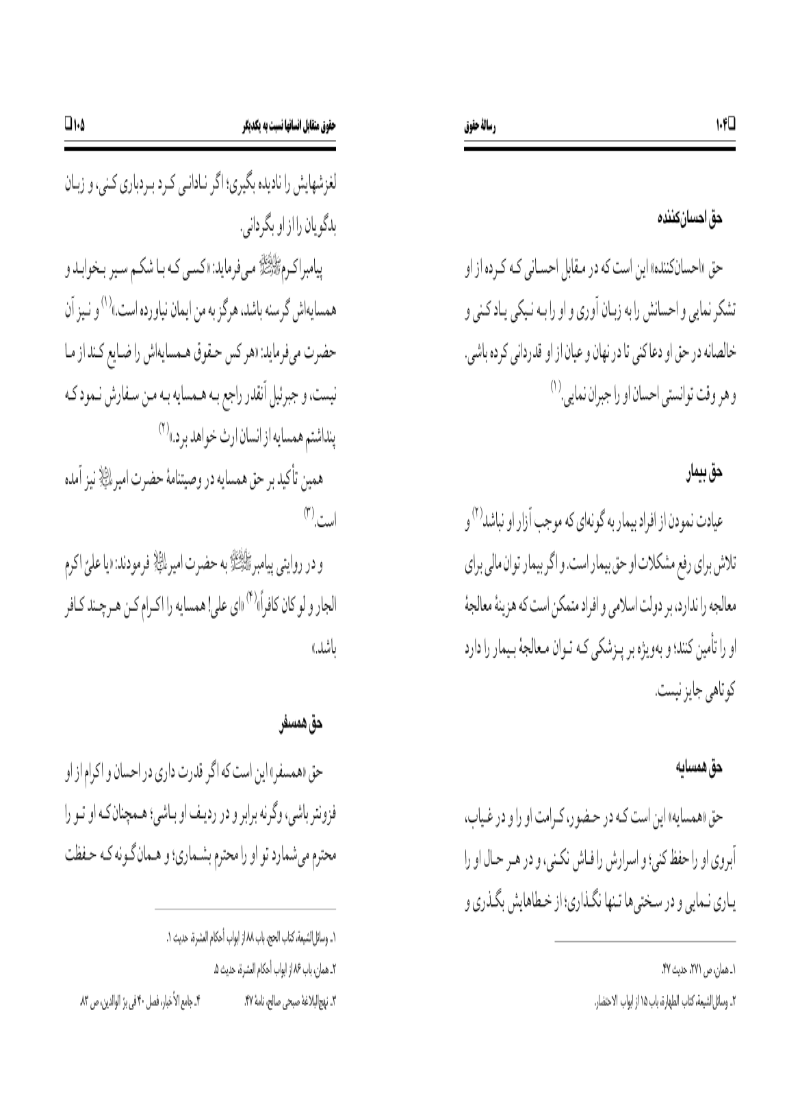 ❑۱۰۴
رسالهٔ حقوق
حق احسان‌کننده
حق «احسان‌کننده» این است که در مقابل احسانی که کرده از او
تشکر نمایی و احسانش را به زبان آوری و او را به نیکی یاد کنی و
خالصانه در حق او دعا کنی تا در نهان و عیان از او قدردانی کرده باشی.
و هر وقت توانستی احسان او را جبران نمایی.(۱)
حق بیمار
عیادت نمودن از افراد بیمار به گونه‌ای که موجب آزار او نباشد(۲) و
تلاش برای رفع مشکلات او حق بیمار است. و اگر بیمار توان مالی برای
معالجه را ندارد، بر دولت اسلامی و افراد متمکن است که هزینهٔ معالجهٔ
او را تأمین کنند؛ و به‌ویژه بر پزشکی که توان معالجهٔ بیمار را دارد
کوتاهی جایز نیست.
حق همسایه
حق «همسایه» این است که در حضور، کرامت او را و در غیاب،
آبروی او را حفظ کنی؛ و اسرارش را فاش نکنی، و در هر حال او را
یاری نمایی و در سختی‌ها تنها نگذاری؛ از خطاهایش بگذری و
۱ـ همان، ص ۲۷۱، حدیث ۴۷.
۲ـ وسائل‌الشیعة، کتاب الطهارة، باب ۱۵ از ابواب الاحتضار.
حقوق متقابل انسانها نسبت به یکدیگر
۱۰۵❑
لغزشهایش را نادیده بگیری؛ اگر نادانی کرد بردباری کنی، و زبان
بدگویان را از او بگردانی.
پیامبر اکرمﷺ می‌فرماید: «کسی که با شکم سیر بخوابد و
همسایه‌اش گرسنه باشد، هرگز به من ایمان نیاورده است.»(۱) و نیز آن
حضرت می‌فرماید: «هر کس حقوق همسایه‌اش را ضایع کند از ما
نیست، و جبرئیل آنقدر راجع به همسایه به من سفارش نمود که
پنداشتم همسایه از انسان ارث خواهد برد.»(۲)
همین تأکید بر حق همسایه در وصیتنامهٔ حضرت امیر نیز آمده
است.(۳)
و در روایتی پیامبرﷺ به حضرت امیر فرمودند: «یا علیّ اکرم
الجار و لو کان کافراً»(۴) «ای علی! همسایه را اکرام کن هرچند کافر
باشد.»
حق همسفر
حق «همسفر» این است که اگر قدرت داری در احسان و اکرام از او
فزونتر باشی، وگرنه برابر و در ردیف او باشی؛ همچنان که او تو را
محترم می‌شمارد تو او را محترم بشماری؛ و همان گونه که حفظت
۱ـ وسائل‌الشیعة، کتاب الحج، باب ۸۸ از ابواب أحکام العشرة، حدیث ۱.
۲ـ همان، باب ۸۶ از ابواب أحکام العشرة، حدیث ۵.
۳ـ نهج‌البلاغة صبحی صالح، نامهٔ ۴۷. ۴ـ جامع الأخبار، فصل ۴۰ فی برّ الوالدین، ص ۸۳.